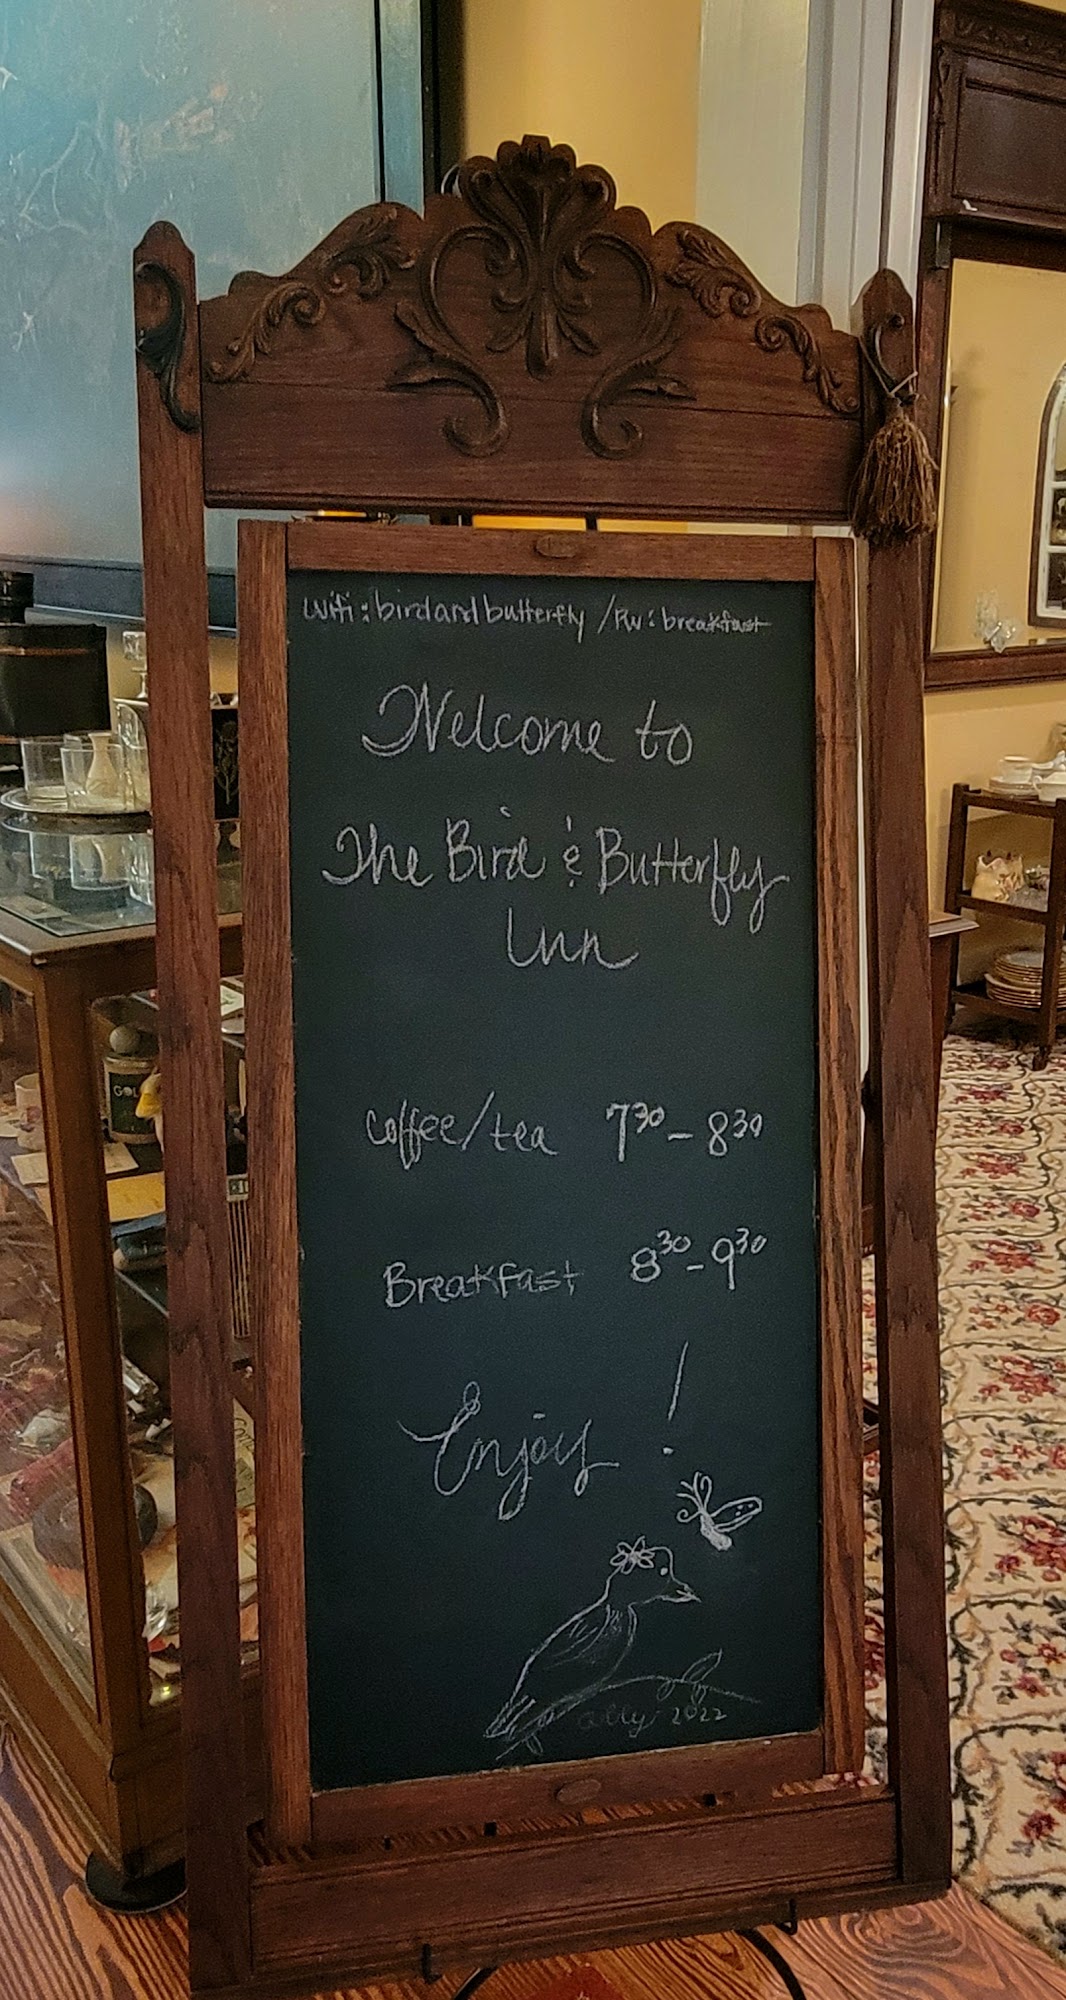 wifi: birdandbutterfly / Pw: breakfast
Welcome to
The Bird & Butterfly
Inn
coffee/tea 7³⁰ – 8³⁰
Breakfast 8³⁰ – 9³⁰
Enjoy!
ally 2022
GOL